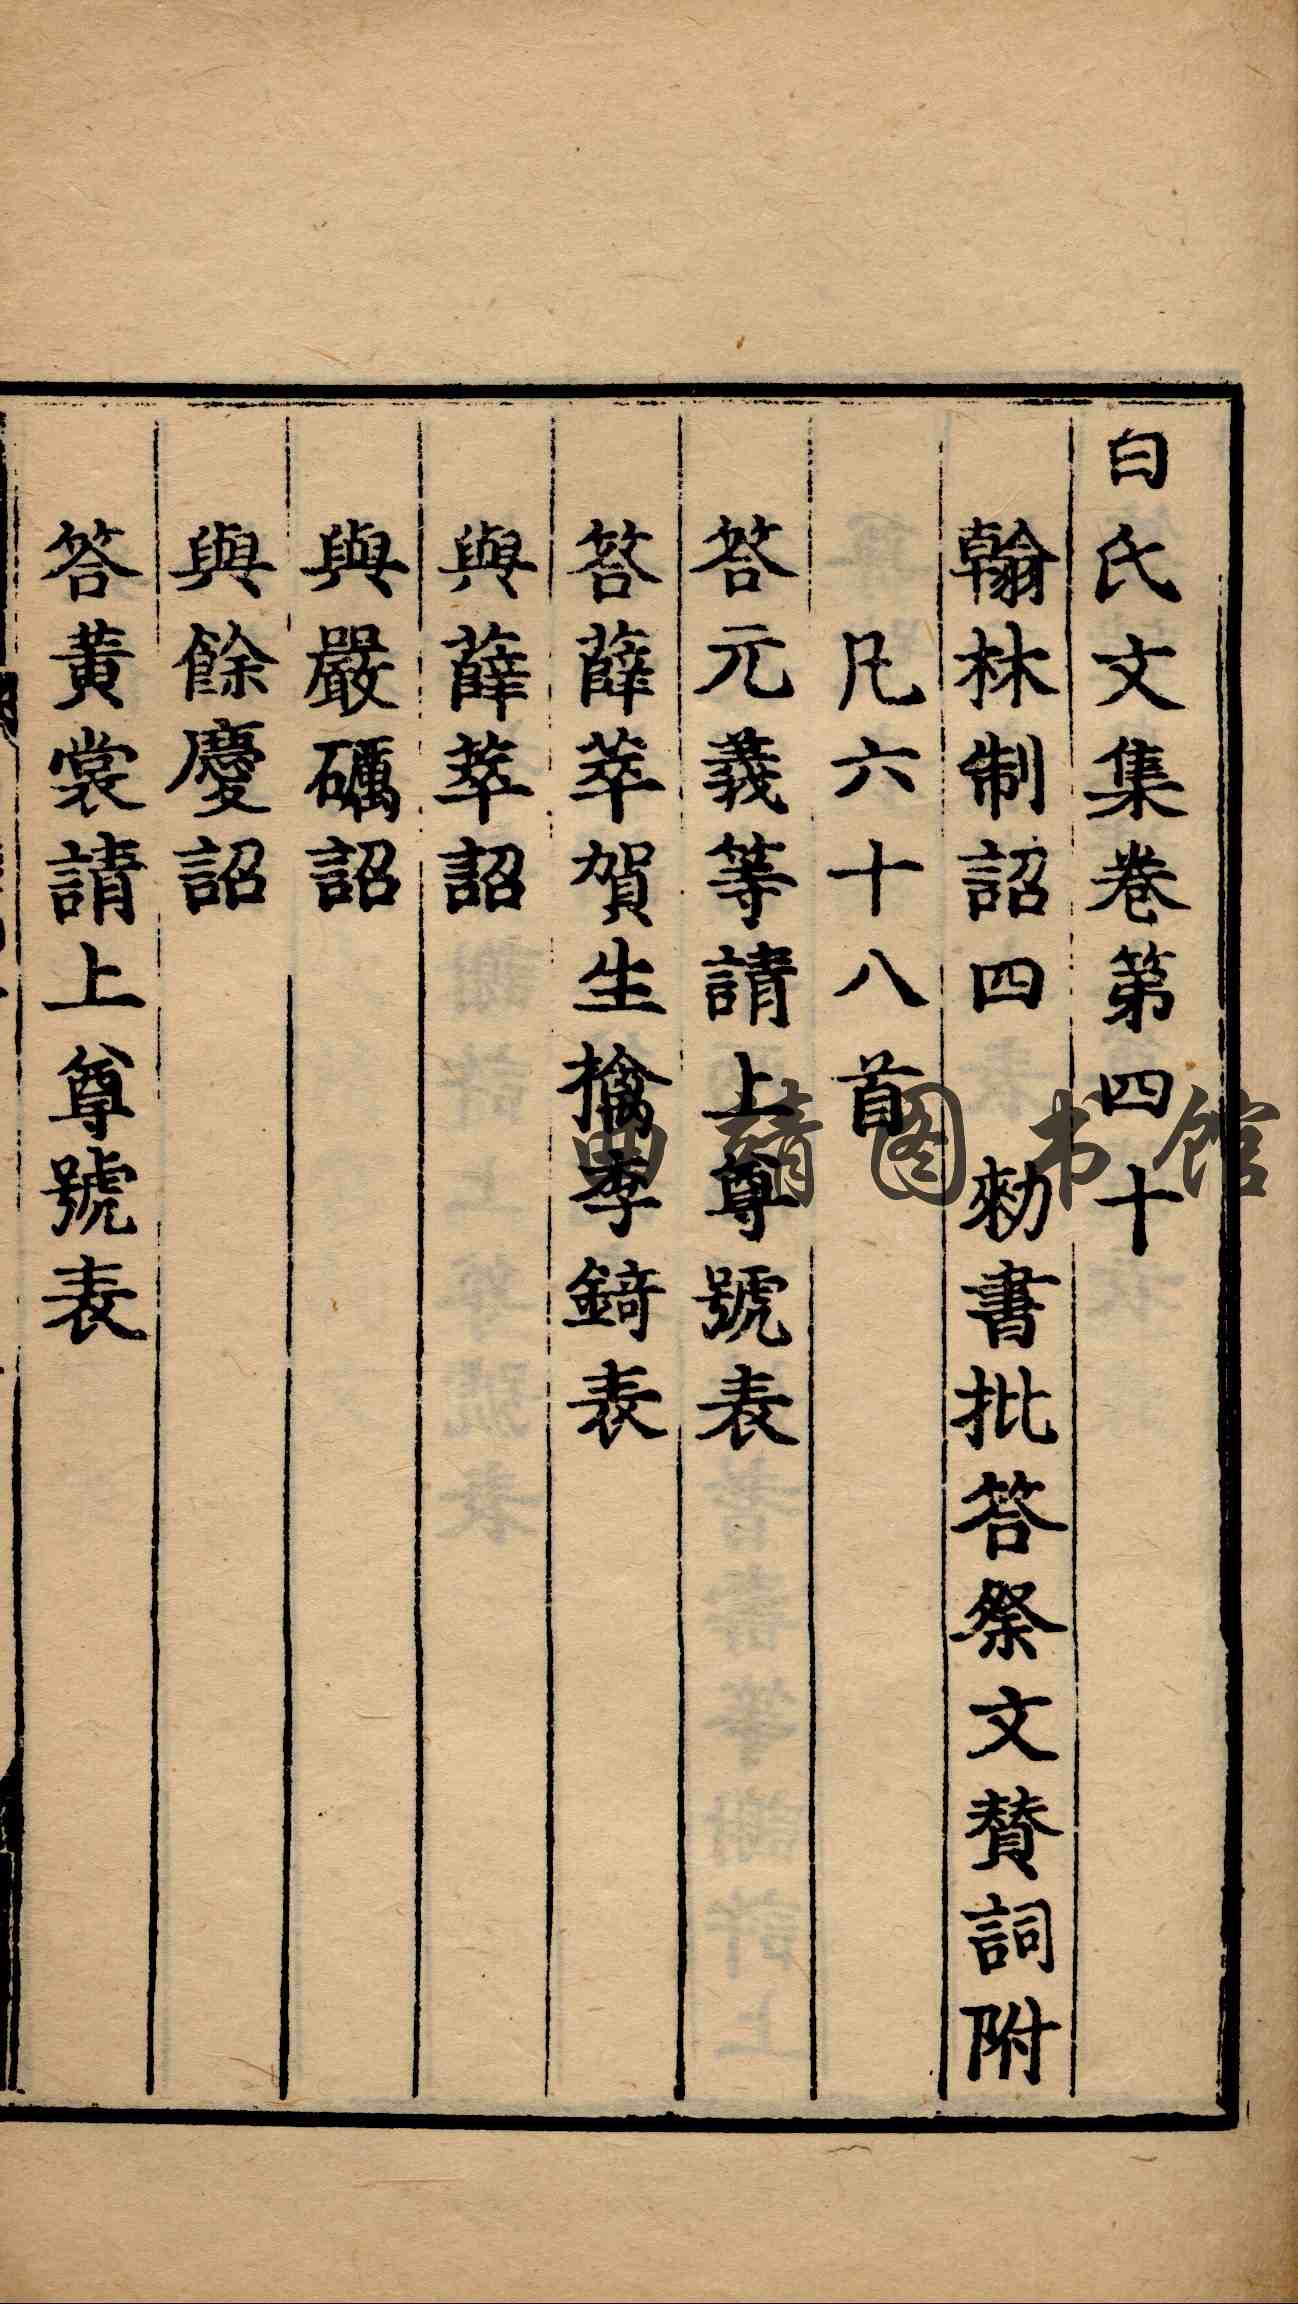 白氏文集卷第四十
翰林制詔四　勑書批答祭文賛詞附
凡六十八首
答元義等請上尊號表
答薛萃賀生擒李錡表
與薛萃詔
與嚴礪詔
與餘慶詔
答黃裳請上尊號表
曲靖图书馆